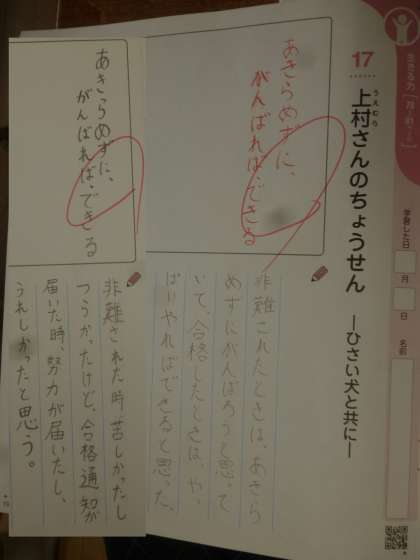 生きる力
17
うえむら
上村さんのちょうせん
―ひさい犬と共に―
学習した日
月
日
名前
あきらめずに、
がんばれば、できる
非難されたときは、あきら
めずにがんばろうと思って
いて、合格したときは、やっ
ぱりやればできると思った。
あきらめずに、
がんばれば、できる
非難された時、苦しかったし
つらかったけど、合格通知が
届いた時、努力が届いたし、
うれしかったと思う。